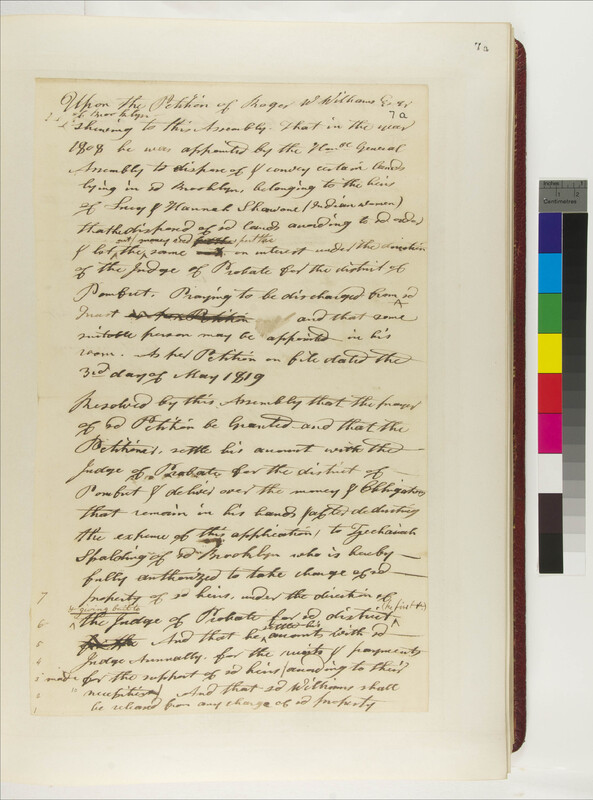 7a
Upon the Petition of Roger W Williams Esqr
of Brooklyn
7a
shewing to this Assembly. That in the year
1808 he was appointed by the Honbl General
Assembly to dispose of & convey certain lands
lying in sd Brooklyn, belonging to the heirs
of Lucy & Hannah Shawone, (Indian women)
That he disposed of sd lands according to sd order
money and put the
& the same on interest under the direction
of the Judge of Probate for the district of
Pomfret. Praying to be discharged from sd
trust as per Petition and that some
suitable person may be appointed in his
room. As per Petition on file dated the
3rd day of May 1819
Resolved by this Assembly that the prayer
of sd Petition be Granted and that the
Petitioner, settle his account with the
Judge of Probate for the district of
Pomfret & deliver over the money & Obligations
that remain in his hands (after deducting
the expense of this application) to
Spalding of sd Brooklyn who is hereby
fully authorized to take charge of sd
7 property of sd heirs, under the direction of
giving bonds to
6 the Judge of Probate for sd district
settle his
5 And that he account with sd
4 Judge Annually. for the receipts & payments
3 made for the support of sd heirs (according to their
2 necessities) And that sd Williams shall
1 be released from any charge of sd property
Inches
Centimetres